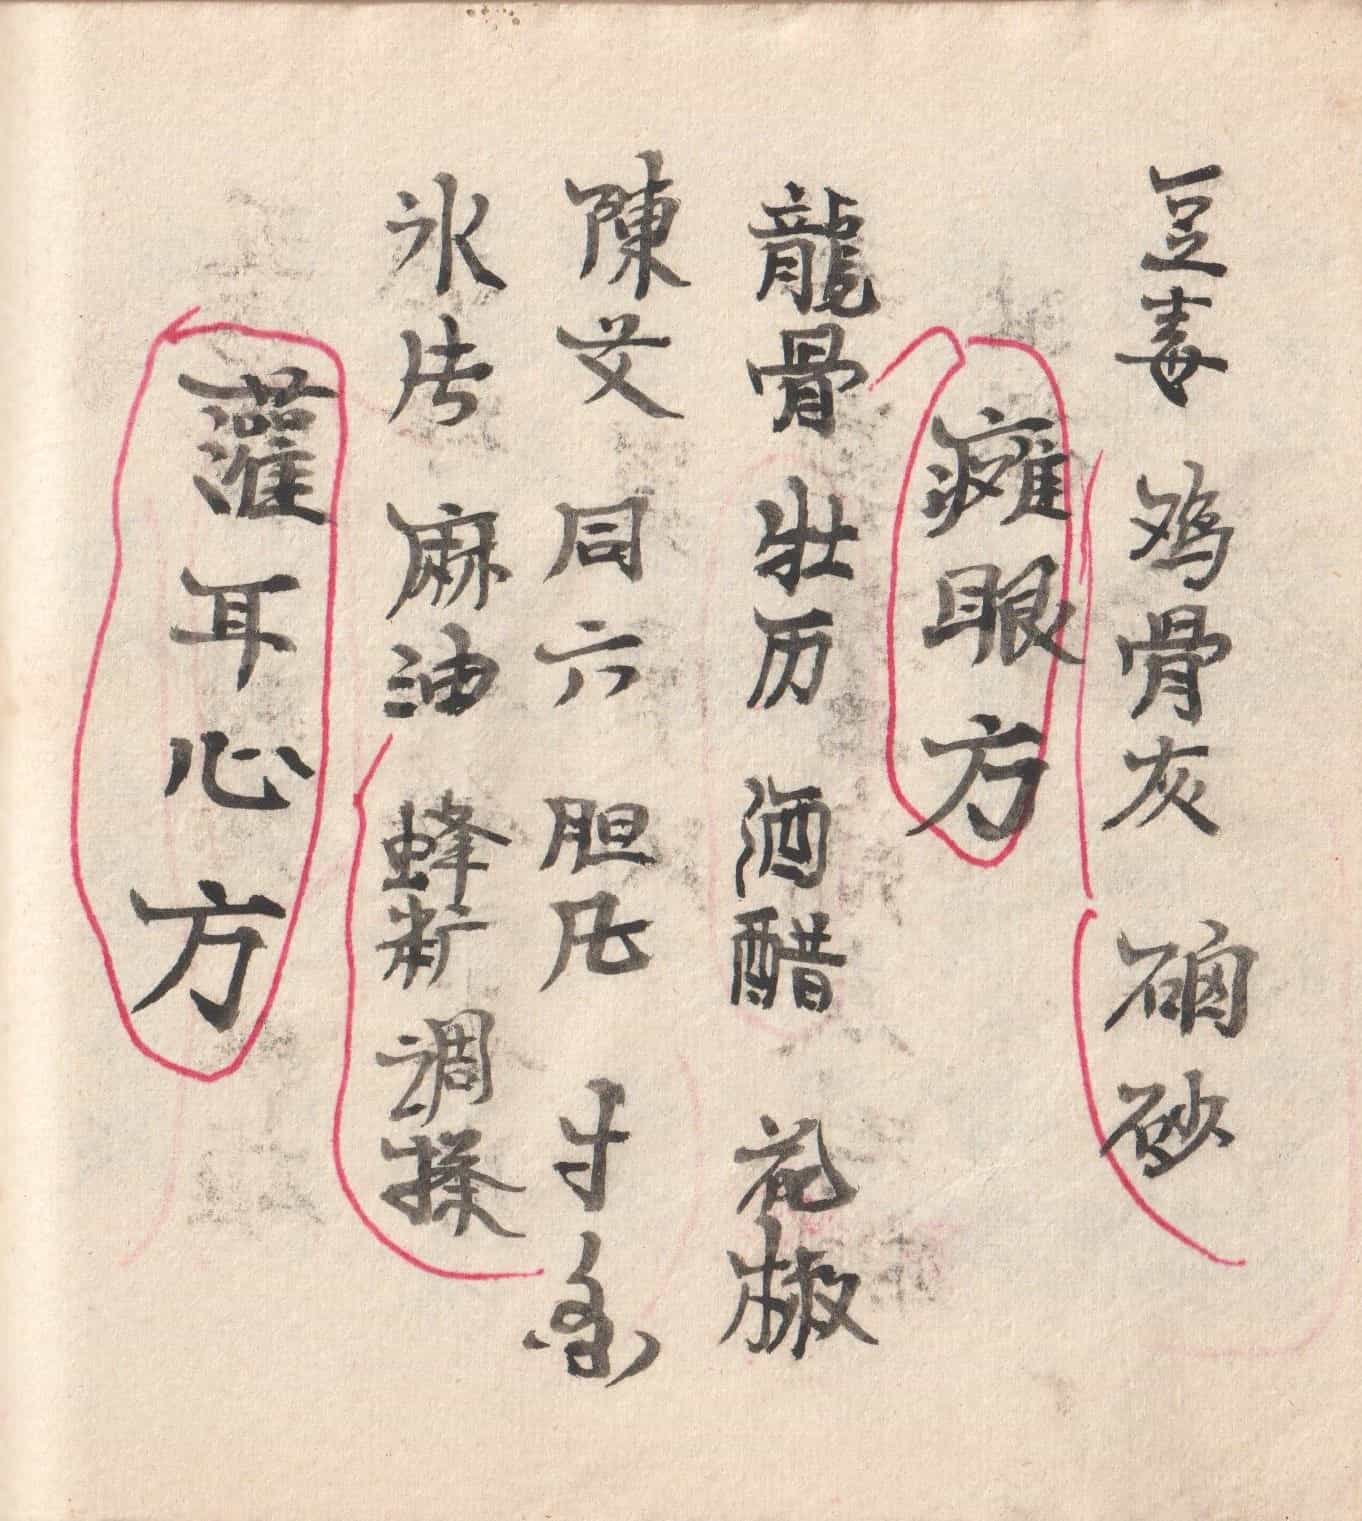 豆毒 鸡骨灰 硇砂
癱眼方
龍骨 壮历 酒醋 花椒
陳艾 同六 胆凡 寸
氷片 麻油 蜂 調搽
灌耳心方